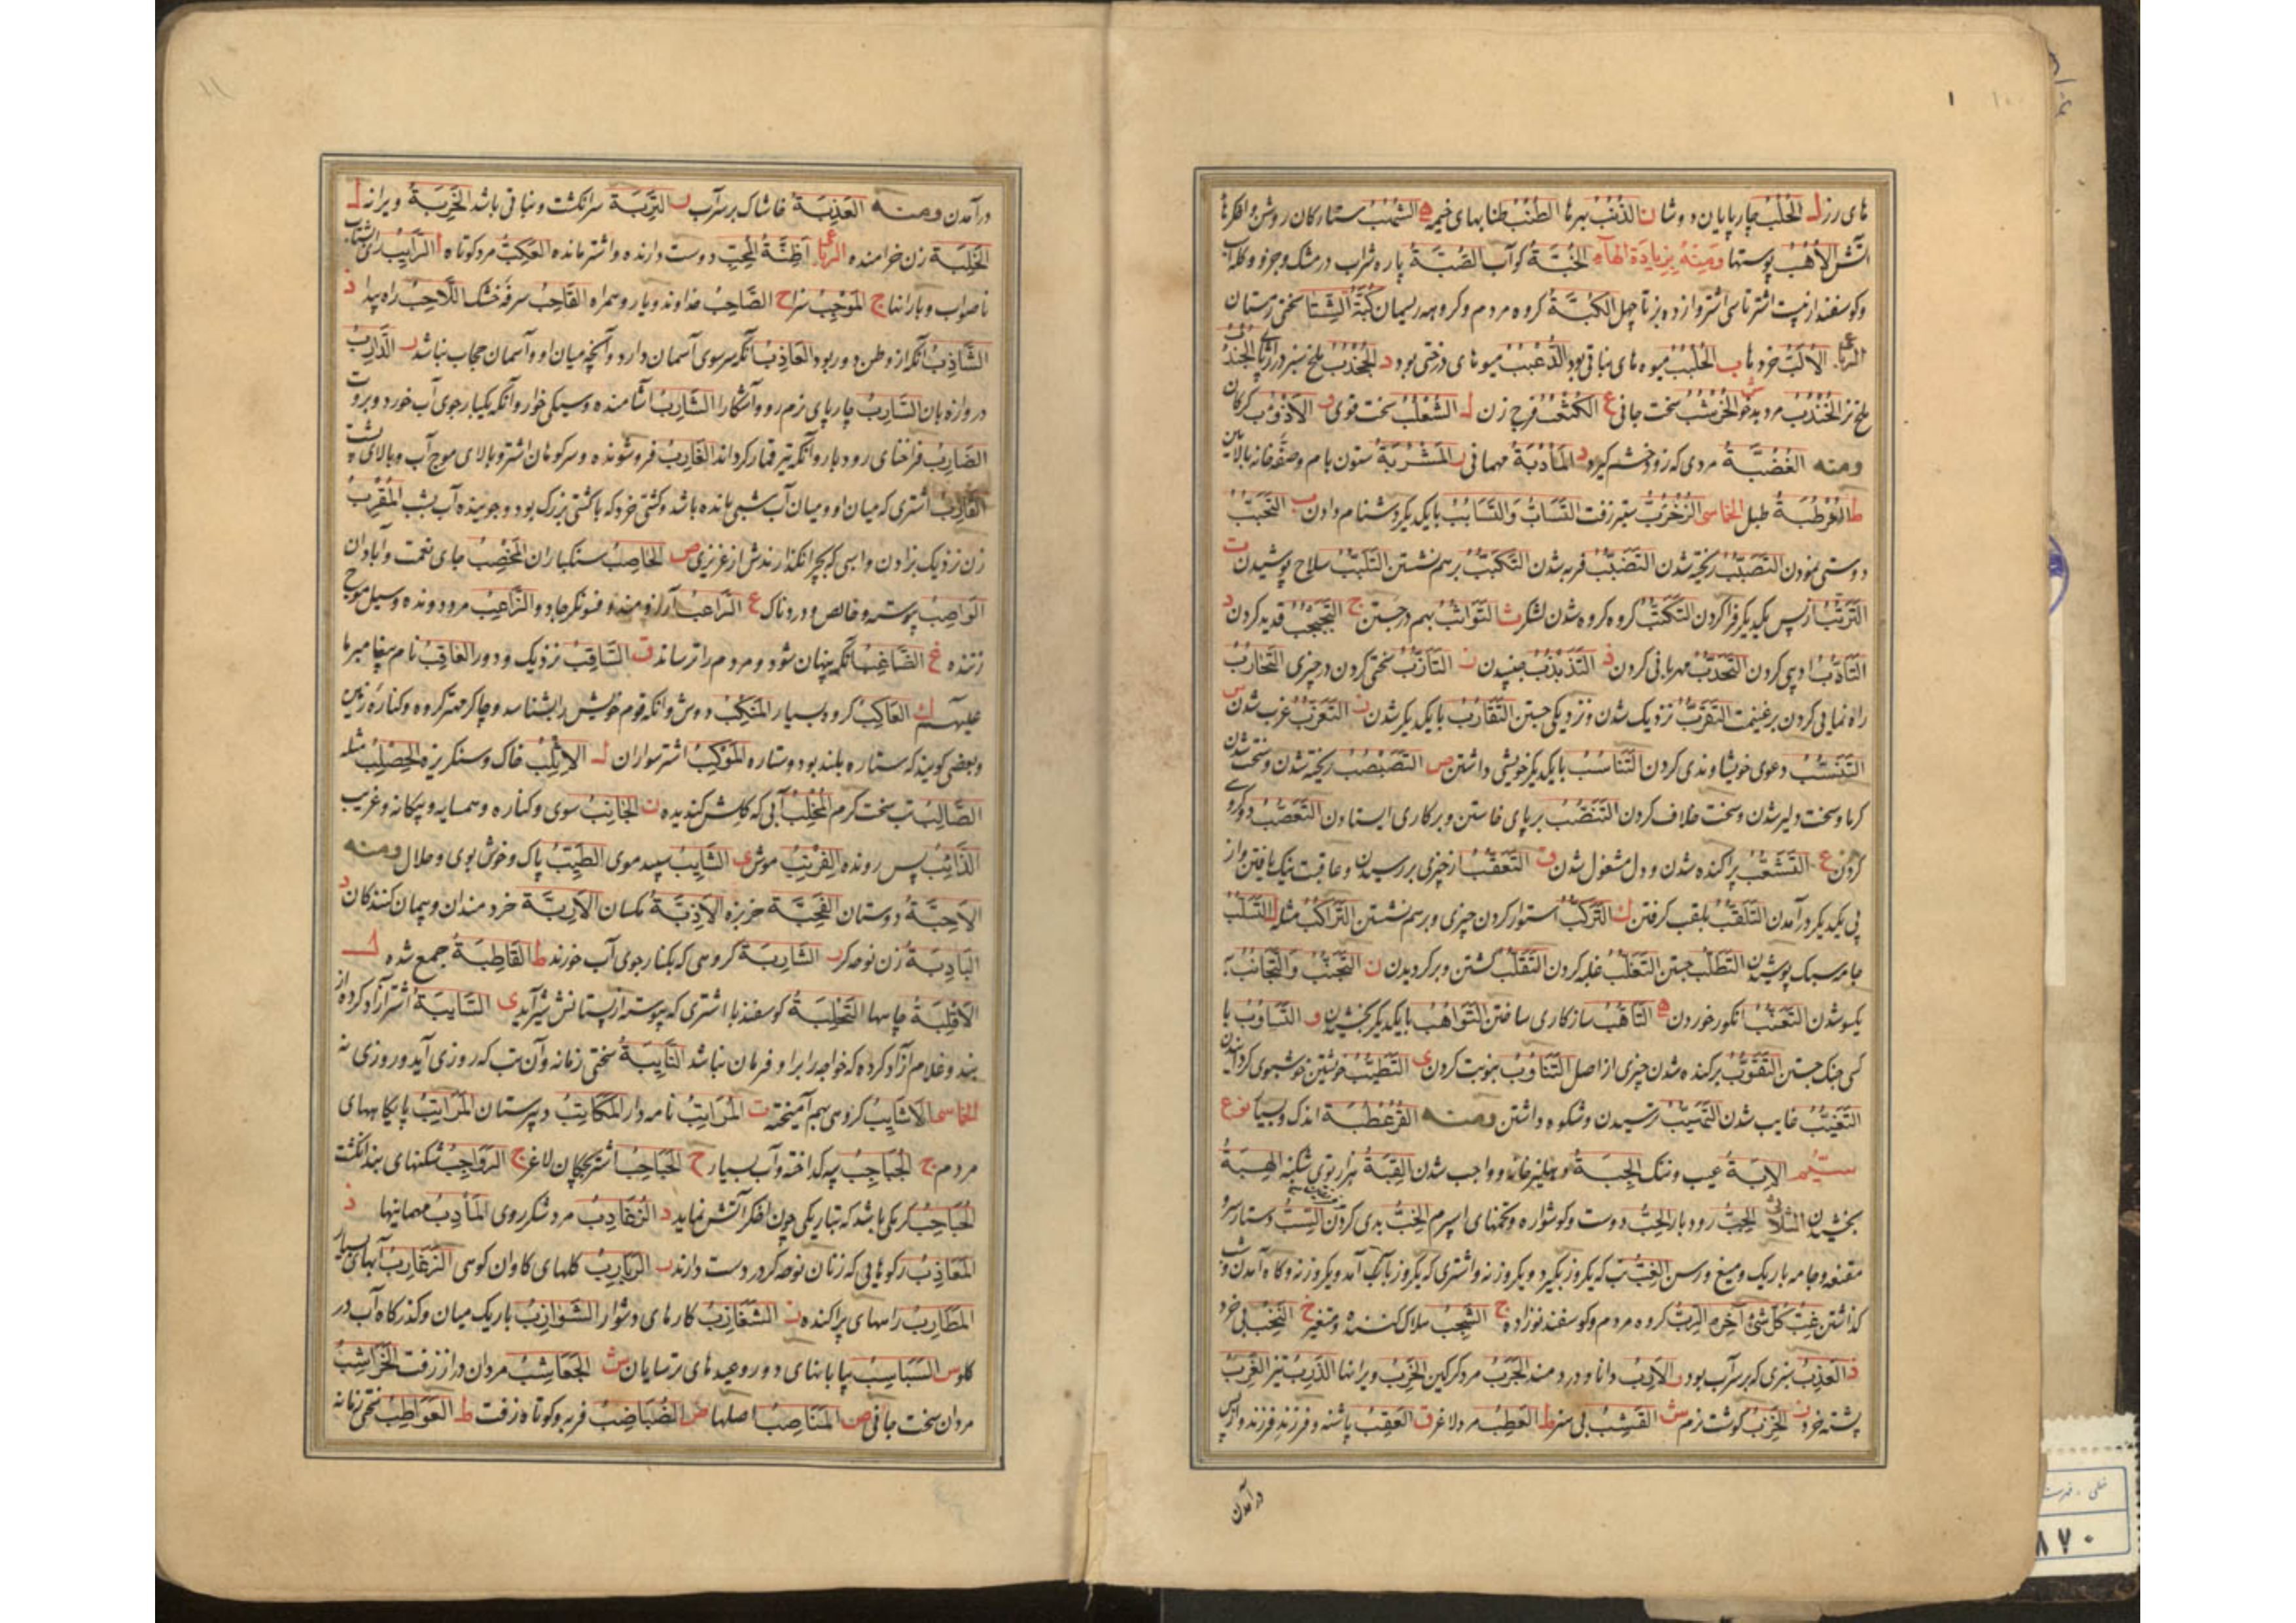 های رز ل الحُلُب چارپایان دوشا ن الذُنُب بهرها الطُنُب طنابهای خیمه ه الشُهُب ستارکان روشن و اخکرهای
آتش الاُهُب پوستها ومنه بزیادة الهاء الخُبَّة کوآب الصُبَّة پاره شراب در مشک و جز او و کله
وکوسفند از بیست اشتر تا سی اشتر واز ده بز تا چهل الکُبَّة کروه مردم و کروهه ریسمان کُبَّة الشتا سختی زمستان
خردها ب الحُلبُب میوه های نباتی بود الدُعبُب میوهای درختی بود د الجُخدُب ملخ سبز دراز پای الجُندُب
ملخ نر الخُندُب مرد بدخو الخُرشُب سخت جافی ع الکُثعُب فرج زن ل الثُعلُب سخت قوی الاَذؤُب کرکان
ومنه الغُضُبَّة مردی که زود خشم کیرد د المَأدُبَة مهمانی ر المَشرُبَة ستون بام و صفّه خانه بالایین
ط العُرطُبَة طبل الخماسی الزُخرُبّ سطبر زفت التَسابّ والتَسابُب بایکدیکر دشنام دادن ب التَحَبُّب
دوستی نمودن التَصَبُّب ریخته شدن التَضَبُّب فربه شدن التَکَبُّب برهم نشستن التَلَبُّب سلاح پوشیدن ت
التَرَتُّب از پس یکدیکر فراکردن التَکَتُّب کروه کروه شدن لشکر ث التَواثُب بهم درجستن ج التَجَبجُب قدید کردن د
التَأَدُّب ادبی کردن التَحَدُّب مهربانی کردن ذ التَذَبذُب جنبیدن ز التَأَزُّب سختی کردن در چیزی التَحارُب
راه نمایی کردن بر غنیمت التَقَرُّب نزدیک شدن و نزدیکی جستن التَقارُب بایکدیکر شدن التَعَزُّب عزب شدن س
التَنَسُّب دعوی خویشاوندی کردن التَناسُب بایکدیکر خویشی داشتن ص التَصَبصُب ریخته شدن و سخت شدن
کرما و سخت دلیر شدن و سخت خلاف کردن التَنَصُّب برپای خاستن و بر کاری ایستادن التَعَصُّب
کردن ع التَشَعُّب پراکنده شدن و دل مشغول شدن ق التَعَقُّب از چیزی بررسیدن و عاقبت نیک یافتن واز
پی یکدیکر درآمدن التَلَقُّب بلقب کرفتن ک التَرَکُّب استوار کردن چیزی و برهم نشستن التَراکُب مثله ل التَسَلُّب
جامه سبک پوشیدن التَطَلُّب جستن التَغَلُّب غلبه کردن التَقَلُّب کشتن و برکردیدن ن التَجَنُّب والتَجانُب
یکسو شدن التَعَنُّب انکور خوردن ه التَأَهُّب سازکاری ساختن التَواهُب بایکدیکر بخشیدن و التَساوُب با
کسی جنک جستن التَقَوُّب برکنده شدن چیزی از اصل التَناوُب بنوبت کردن ی التَطَیُّب خویشتن خوشبوی کردانیدن
التَغَیُّب غایب شدن التَهَیُّب ترسیدن و شکوه داشتن ومنه القُرعُطُبَة اندک و بسیار نوع
سیّم الاِبَة عیب و ننک الجِبَة و واجب شدن القِبَة هزار توی شکنبه الهِبَة
بخشیدن الثلاثی الجِبّ رودبار الحِبّ دوست و کوشواره و تخمهای اسپرم الخِبّ بدی کردن السِبّ دستار سر و
مقنعه و جامه باریک و میغ و رسن الغِبّ تب که یکروز بکیرد و یکروز نه و اشتری که یکروز بآب آمد و یکروز نه و کاه آمدن و
کذاشتن غِبُّ کلّ شئ آخره الرِبّ کروه مردم و کوسفند نوزاده ج الشَجِب هلاک کننده و متغیر خ النَخِب بی خرد
ذ العَذِب بنزی که بر سر آب بود ر الاَرِب دانا و دردمند الجَرِب مرد کرکین الخَرِب ویرانها الذَرِب تیز الغَرِب
پشته خرد ز الخَزِب کوشت نرم ش القَشِب بی سر ط العَطِب مرد لاغر ق العَقِب پاشنه و فرزند فرزند واز پس
درآمدن
درآمدن ومنه العَذِبَة خاشاک بر سر آب ر التَرِبَة سرانکشت و نباتی باشد الخَرِبَة ویرانه ل
الخَلِبَة زن خرامنده الرباعی اَظِنَّةُ المُحِبّ دوست دارنده و اشتر مانده العَکِبّ مرد کوتاه ا الرَّایِب رای
ناصواب و بارانها ج المَوجِب سزا ح الصَّاحِب خداوند و یار و همراه القَاحِب سرفه خشک اللَّاحِب راه پیدا ذ
الشَّاذِب آنکه از وطن دور بود العَاذِب آنکه سر سوی آسمان دارد و آنچه میان او و آسمان حجاب نباشد ر الدَّارِب
دروازه بان السَّارِب چارپای نرم رو و آشکارا الشَّارِب آشامنده و سیکی خوار و آنکه یکبار جوی آب خورد و بروت
الضَارِب فراخنای رودبار و آنکه تیر قمار کرداند الغَارِب فروشونده و سر کوهان اشتر و بالای موج آب و بالای پشت
القَارِب اشتری که میان او و میان آب شبی مانده باشد و کشتی خرد که با کشتی بزرک بود و جوینده آب بشب المُقرِب
زن نزدیک بزادن و اسبی که بچرا نکذارندش از عزیزی ص الحَاصِب سنکباران المُخصِب جای نعمت و آبادان
الوَاصِب پیوسته و خالص و دردناک ع الرَّاعِب آرزومند و فسونکر جادو و الزَّاعِب مرد دونده و سیل موج
زننده غ الضَّاغِب آنکه پنهان شود و مردم را ترساند ق السَّاقِب نزدیک و دور العَاقِب نام پیغامبر ما
علیه السلام ک العَاکِب کرد بسیار المَنکِب دوش و آنکه قوم خویش را بشناسد و چاکر مهتر کروه و کناره زمین
و بعضی کویند که ستاره بلند بود و ستاره المَوکِب اشترسواران ل الاِثلِب خاک و سنکریزه الحِصلِب مثله
الصَّالِب تب سخت کرم المُخلِب آبی که کلش کندیده ن الجَانِب سوی و کناره و همسایه و بیکانه و غریب
الذَّانِب پس رونده الفِرنِب موش ی الشَایِب سپید موی الطَیِّب پاک و خوش بوی و حلال ومنه
الاَحِبَّة دوستان خربزه الاَذِبَّة مکسان الاَرِبَّة خردمندان و پیمان کنندکان د
النَادِبَة زن نوحه کر ر الشَارِبَة کروهی که بکنار جوی آب خورند ط القَاطِبَة جمع شده ل
الاَقلِبَة چاهها التَحلِبَة کوسفند با اشتری که پیوسته از پستانش شیر آید ی السَایِبَة اشتر آزاد کرده از
بند و غلام آزاد کرده که خواجه را برا و فرمان نباشد النَایِبَة سختی زمانه و آن تب که روزی آید و روزی نه
الخماسی الاَشایِب کروهی بهم آمیخته ت المُرَاتِب نامه دار المَکَاتِب دبیرستان المَرَاتِب پایکاههای
مردم ج الجُبَاجِب پیه کداخته و آب بسیار ح الحَبَاحِب اشتر بچکان لاغر ج الرَوَاجِب شکنهای بند انکشت
الحُبَاحِب کرمکی باشد که بتاریکی چون اخکر آتش نماید د الزُغَادِب مرد شکر روی المَأدِب مهمانیها ذ
المَعَاذِب رکوهایی که زنان نوحه کر در دست دارند ر الرَبَارِب کلهای کاوان کوهی الزَغَارِب آبهای بسیار
المَطَارِب راههای پراکنده ز الشَغَازِب کارهای دشوار الشَوَازِب باریک میان و کذرکاه آب در
کلو س السَبَاسِب بیابانهای دور و عیدهای ترسایان ش الجَعَاشِب مردان دراز زفت الخَرَاشِب
مردان سخت جافی ص المَنَاصِب اصلها ض الضُبَاضِب فربه و کوتاه زفت ط العَوَاطِب سختی زمانه